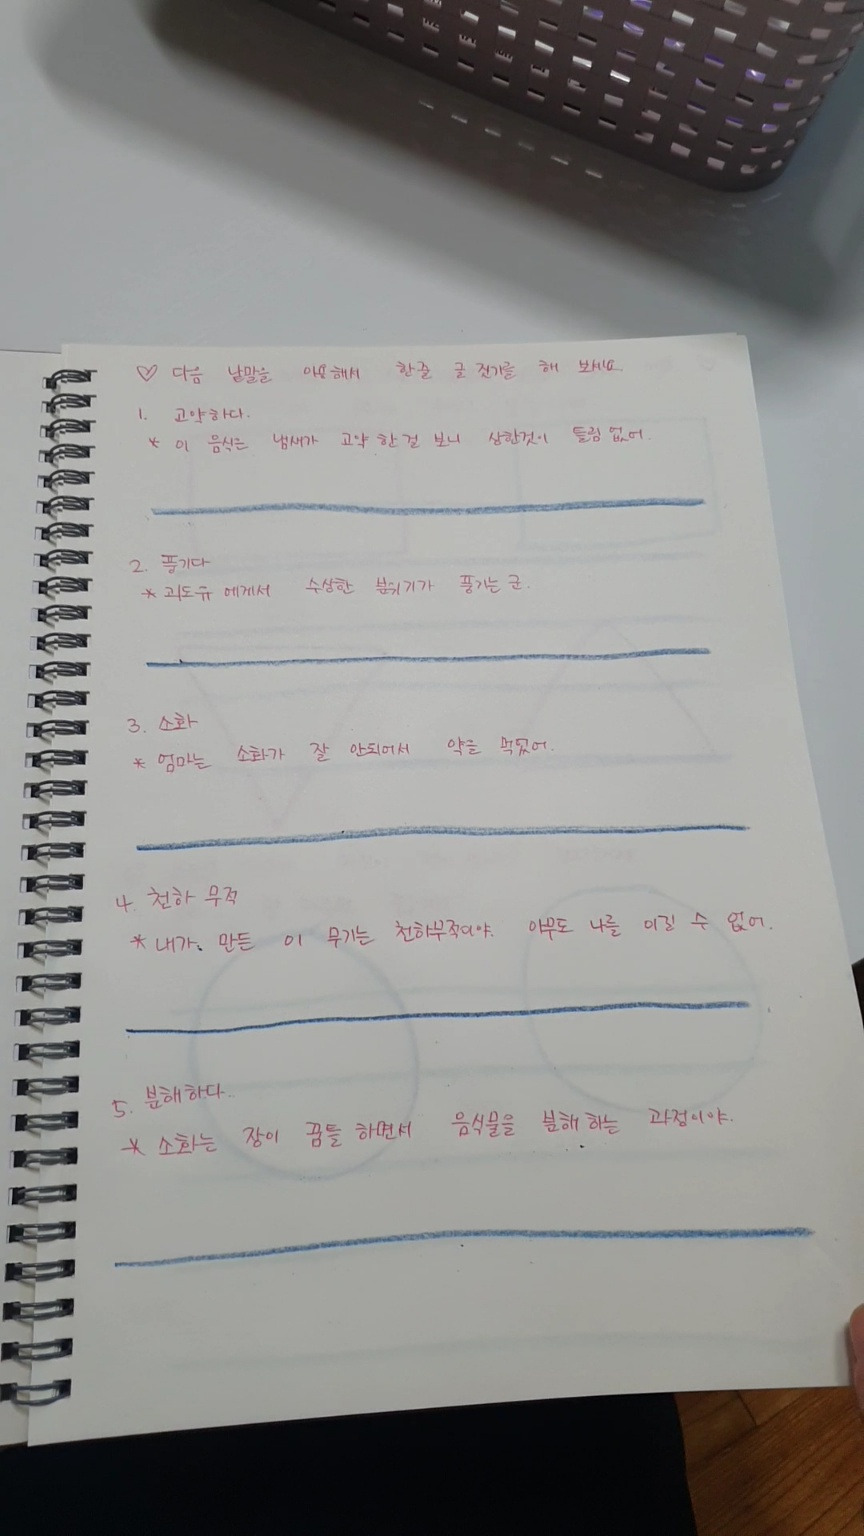 ♡ 다음 낱말을 이용해서 한줄 글 짓기를 해 보세요.
1. 고약하다.
* 이 음식은 냄새가 고약 한걸 보니 상한것이 틀림 없어.
2. 풍기다
* 괴도큐 에게서 수상한 분위기가 풍기는 군.
3. 소화
* 엄마는 소화가 잘 안되어서 약을 먹었어.
4. 천하 무적
* 내가 만든 이 무기는 천하무적이야. 아무도 나를 이길 수 없어.
5. 분해하다..
* 소화는 장이 꿈틀 하면서 음식물을 분해 하는 과정이야.